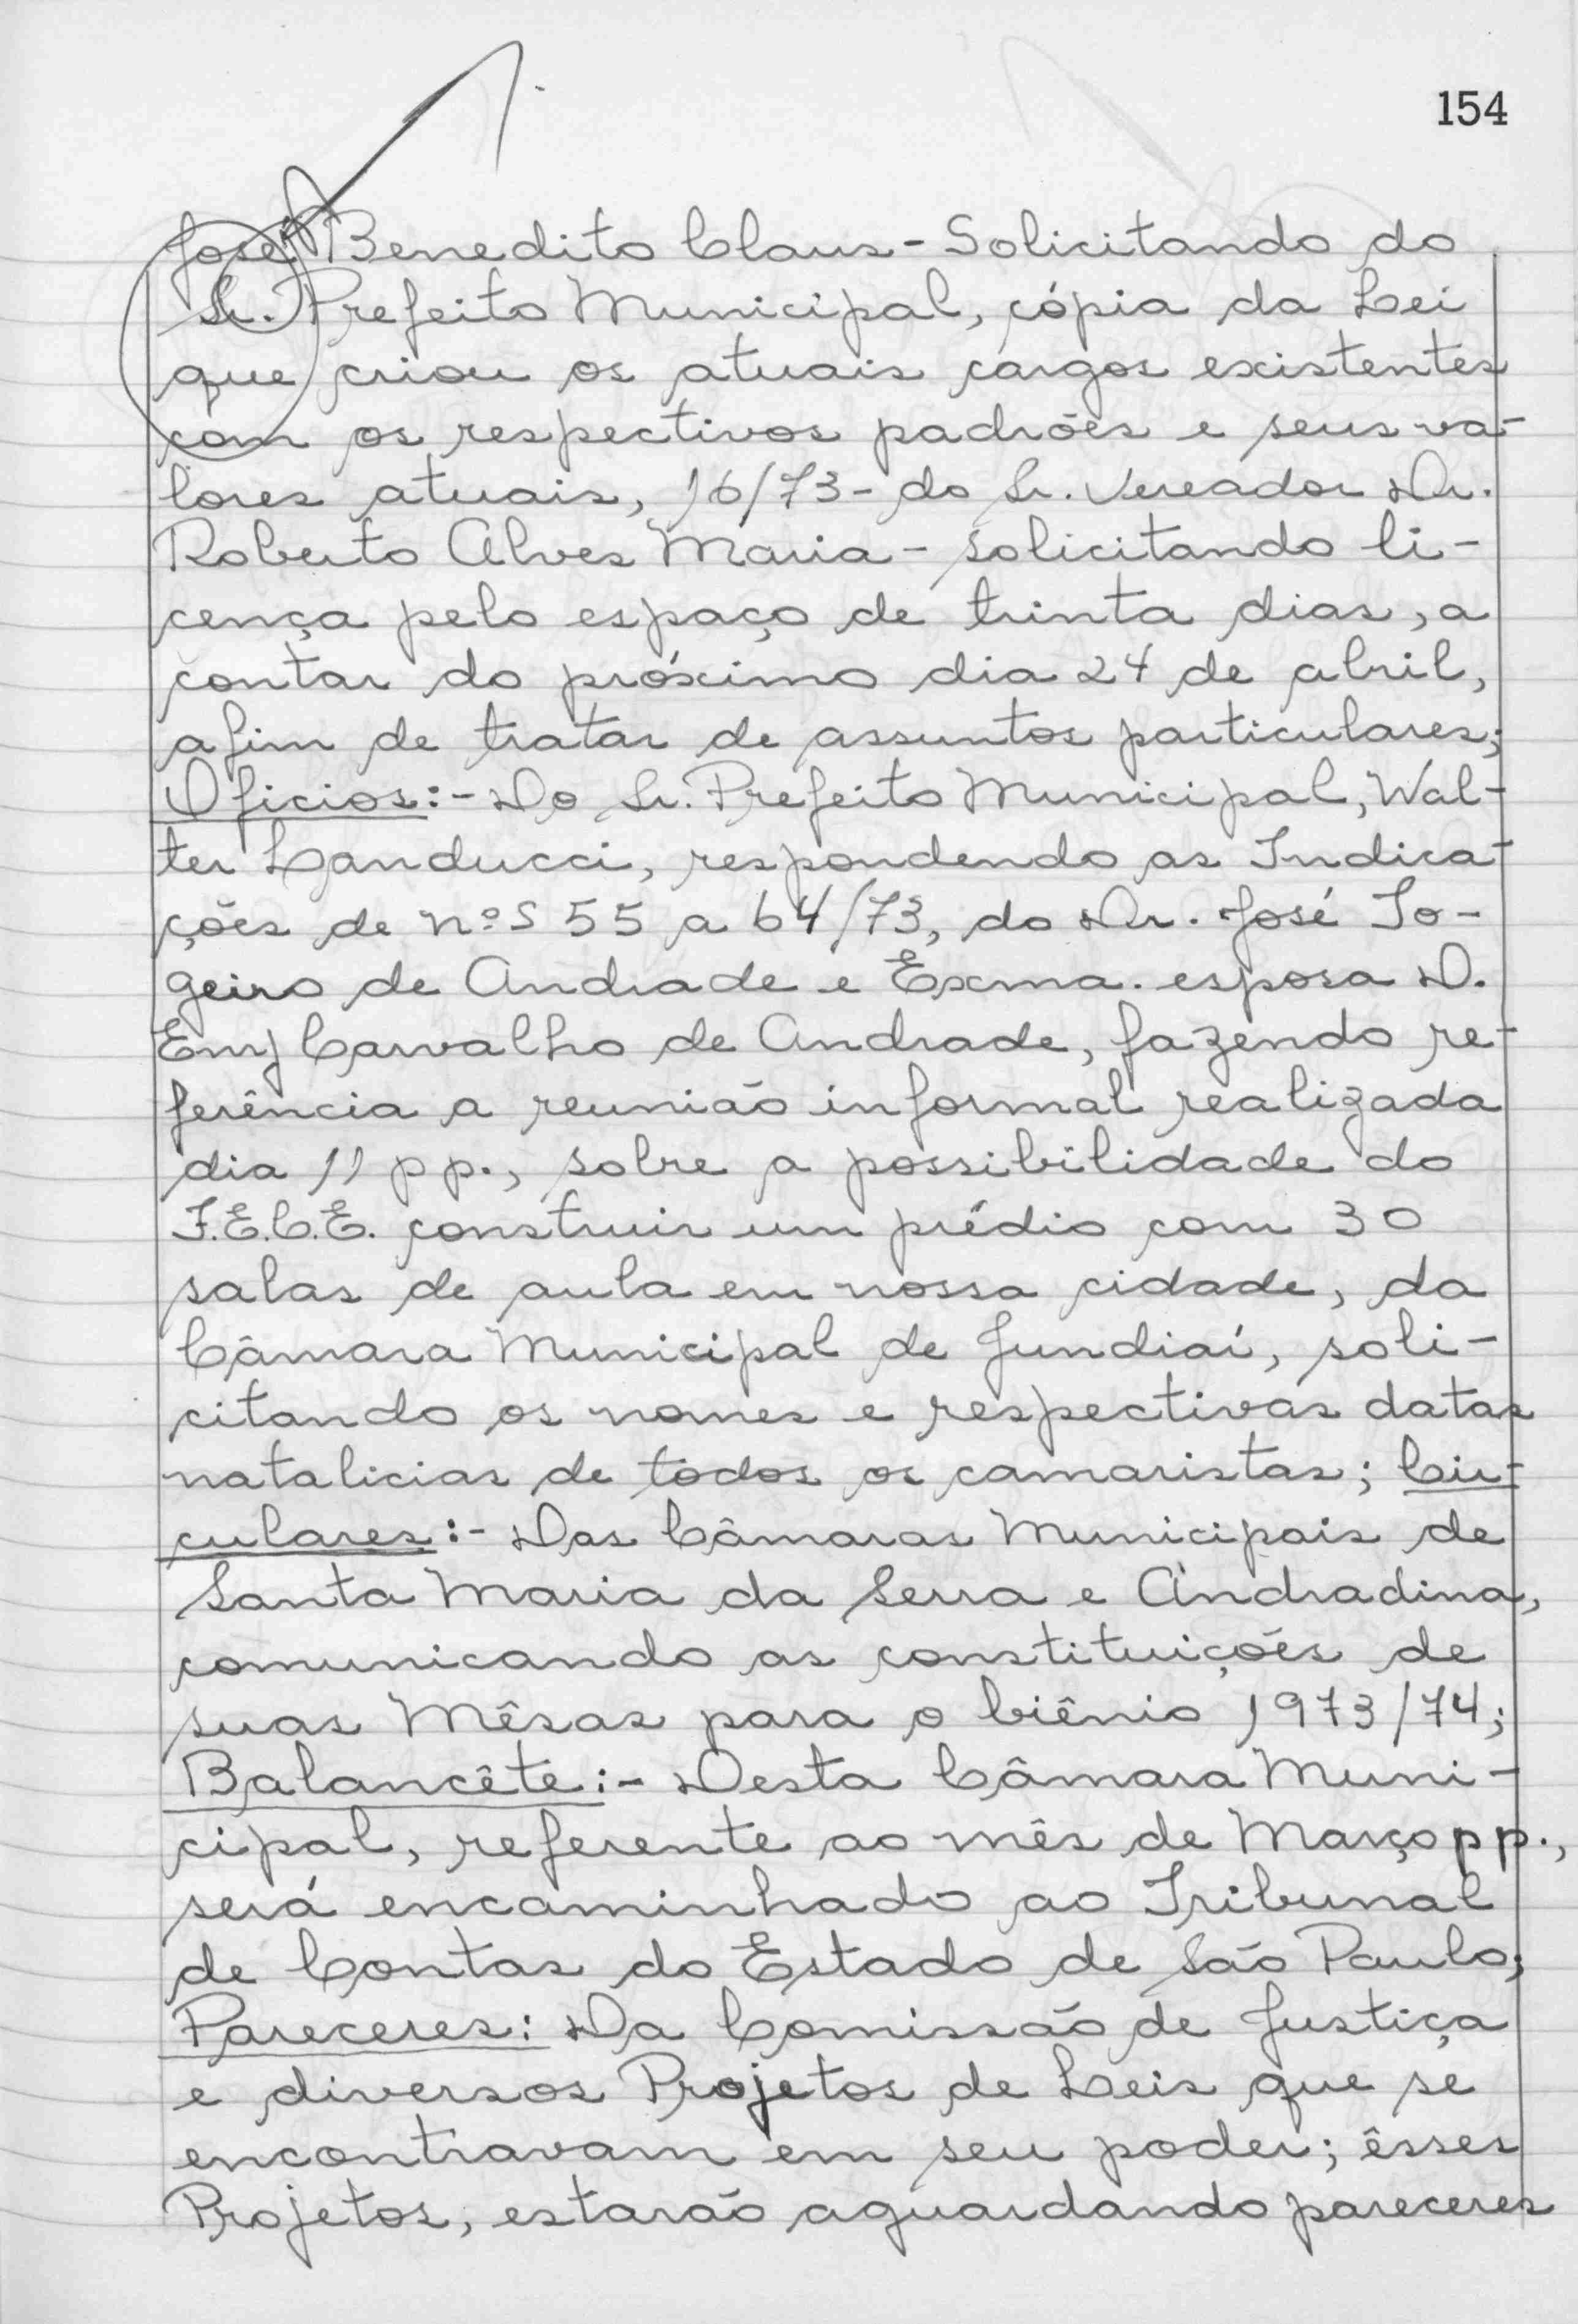 154
José Benedito Claus - Solicitando do
Sr. Prefeito Municipal, cópia da Lei
que criou os atuais cargos existentes
com os respectivos padrões e seus va-
lores atuais, 16/73 - do Sr. Vereador Dr.
Roberto Alves Maria - solicitando li-
cença pelo espaço de trinta dias, a
contar do próximo dia 24 de abril,
afim de tratar de assuntos particulares;
Oficios:- Do Sr. Prefeito Municipal, Wal-
ter Landucci, respondendo as Indica-
ções de nºs 55 a 64/73, do Dr. José To-
geiro de Andrade e Exma. esposa D.
Emy Carvalho de Andrade, fazendo re-
ferência a reunião informal realizada
dia 11 pp., sobre a possibilidade do
F.E.C.E. construir um prédio com 30
salas de aula em nossa cidade, da
Câmara Municipal de Jundiaí, soli-
citando os nomes e respectivas datas
natalicias de todos os camaristas; Cir-
culares:- Das Câmaras Municipais de
Santa Maria da Serra e Andradina,
comunicando as constituições de
suas Mêsas para o biênio 1973/74;
Balancête:- Desta Câmara Muni-
cipal, referente ao mês de Março pp.,
será encaminhado ao Tribunal
de Contas do Estado de São Paulo;
Pareceres: Da Comissão de Justiça
e diversos Projetos de Leis que se
encontravam em seu poder; êsses
Projetos, estarão aguardando pareceres